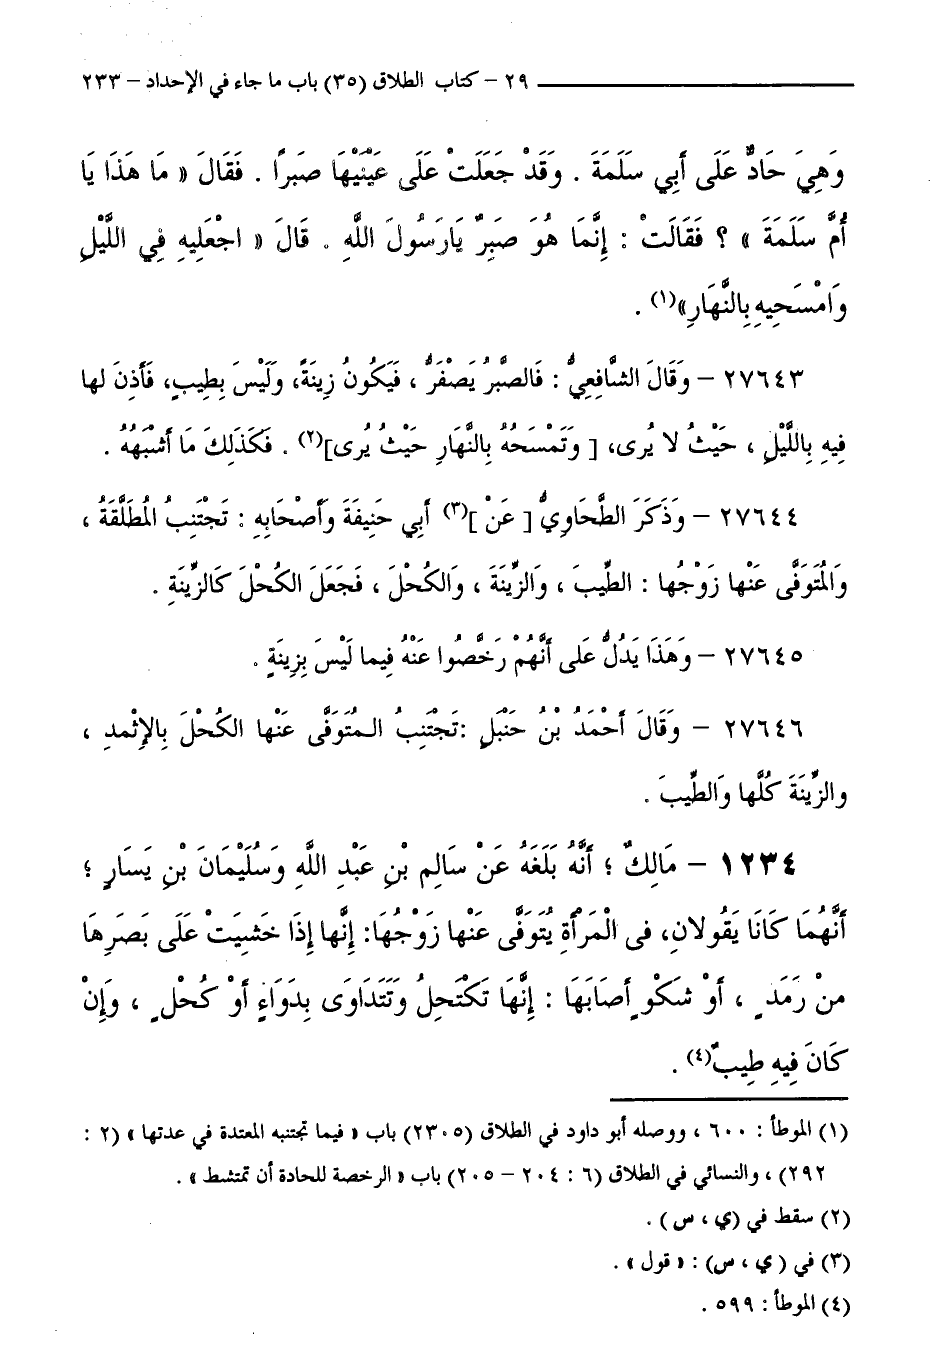 ٢٩ – كتاب الطلاق (٣٥) باب ما جاء في الإحداد – ٢٣٣
وَهِيَ حَادٌّ عَلَى أَبِي سَلَمَةَ . وَقَدْ جَعَلَتْ عَلَى عَيْنَيْهَا صَبِرًا . فَقَالَ « مَا هَذَا يَا
أُمَّ سَلَمَةَ » ؟ فَقَالَتْ : إِنَّمَا هُوَ صَبِرٌ يَارَسُولَ اللَّهِ . قَالَ « اجْعَلِيهِ فِي اللَّيْلِ
وَامْسَحِيهِ بِالنَّهَارِ»(١) .
٢٧٦٤٣ – وَقَالَ الشَّافِعِيُّ : فَالصَّبْرُ يَصْفَرُّ ، فَيَكُونُ زِينَةً، وَلَيْسَ بِطِيبٍ، فَأَذِنَ لها
فِيهِ بِاللَّيْلِ ، حَيْثُ لا يُرى، [ وَتَمْسَحُهُ بِالنَّهَارِ حَيْثُ يُرى](٢) . فَكَذَلِكَ مَا أَشْبَهُهُ .
٢٧٦٤٤ – وَذَكَرَ الطَّحَاوِيُّ [ عَنْ ](٣) أَبِي حَنِيفَةَ وَأَصْحَابِهِ : تَجْتَنِبُ المُطَلَّقَةُ ،
وَالمُتَوَفَّى عَنْها زَوْجُها : الطِّيبَ ، وَالزِّينَةَ ، وَالكُحْلَ ، فَجَعَلَ الكُحْلَ كَالزِّينَةِ .
٢٧٦٤٥ – وَهَذَا يَدُلُّ عَلى أَنَّهُمْ رَخَّصُوا عَنْهُ فِيما لَيْسَ بِزِينَةٍ .
٢٧٦٤٦ – وَقَالَ أَحْمَدُ بْنُ حَنْبَلٍ :تَجْتَنِبُ المُتَوَفَّى عَنْها الكُحْلَ بِالإِثْمدِ ،
والزِّينَةَ كُلَّها وَالطِّيبَ .
١٢٣٤ – مَالِكٌ ؛ أَنَّهُ بَلَغَهُ عَنْ سَالِمِ بْنِ عَبْدِ اللَّهِ وَسُلَيْمَانَ بْنِ يَسَارٍ ؛
أَنَّهُمَا كَانَا يَقُولَانِ، فى الْمَرْأَةِ يُتَوَفَّى عَنْها زَوْجُهَا: إِنَّها إِذَا خَشِيَتْ عَلَى بَصَرِهَا
مِنْ رَمَدٍ ، أَوْ شَكْوٍ أَصَابَهَا : إِنَّهَا تَكْتَحِلُ وَتَتَدَاوَى بِدَوَاءٍ أَوْ كُحْلٍ ، وَإِنْ
كَانَ فِيهِ طِيبٌ(٤) .
(١) الموطأ : ٦٠٠ ، ووصله أبو داود في الطلاق (٢٣٠٥) باب « فيما تجتنبه المعتدة في عدتها » (٢ :
٢٩٢) ، والنسائي في الطلاق (٦ : ٢٠٤ – ٢٠٥) باب « الرخصة للحادة أن تمتشط » .
(٢) سقط في (ي ، س) .
(٣) في ( ي ، س) : « قول » .
(٤) الموطأ : ٥٩٩ .